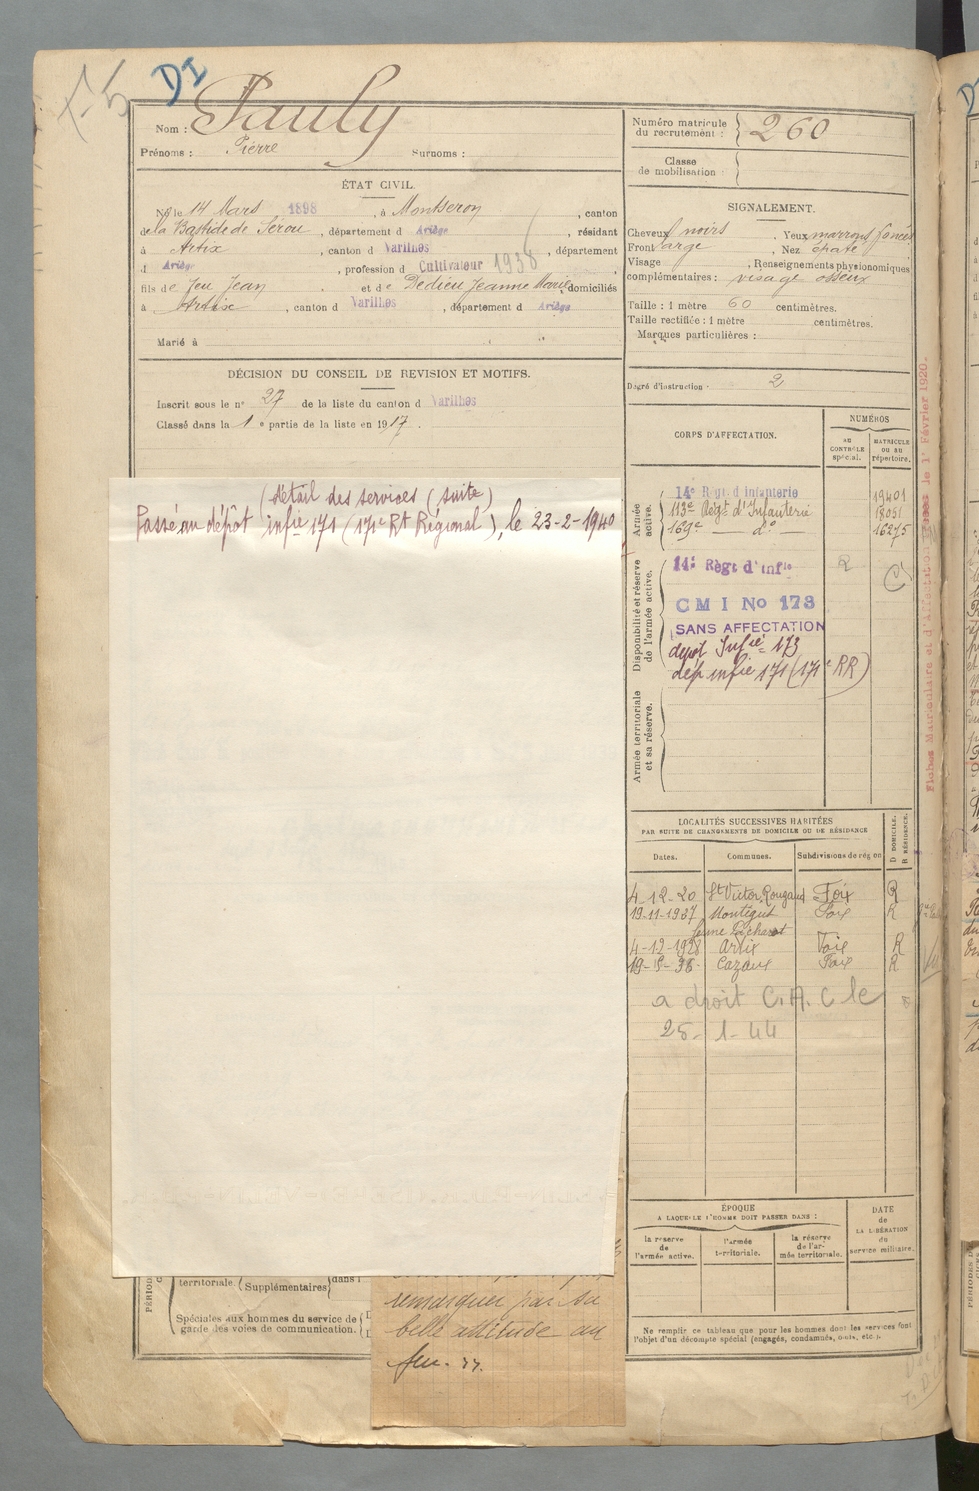 DI
Nom : Pauly
Prénoms : Pierre Surnoms :
Numéro matricule du recrutement : 260
Classe de mobilisation :
ÉTAT CIVIL.
Né le 14 Mars 1898, à Montseron, canton
de la Bastide de Sérou, département d Ariège, résidant
à Artix, canton d Varilhes, département
d Ariège, profession d Cultivateur 1938
fils de feu Jean et de Dedieu Jeanne Marie domiciliés
à Artix, canton d Varilhes, département d Ariège
Marié à
DÉCISION DU CONSEIL DE REVISION ET MOTIFS.
Inscrit sous le n° 27 de la liste du canton d Varilhes
Classé dans la 1e partie de la liste en 1917.
(détail des services (suite)
Passé au dépôt infie 171 (171e Rt Régional), le 23-2-1940
territoriale. (Supplémentaires) dans l
Spéciales aux hommes du service de
garde des voies de communication.
remarquer par sa
belle attitude au
feu.
SIGNALEMENT.
Cheveux noirs Yeux marrons foncés
Front large, Nez épaté
Visage, Renseignements physionomiques
complémentaires : visage osseux
Taille : 1 mètre 60 centimètres.
Taille rectifiée : 1 mètre centimètres.
Marques particulières :
Degré d'instruction : 2
CORPS D'AFFECTATION.
NUMÉROS
AU CONTRÔLE spécial.
MATRICULE OU AU répertoire.
Armée active.
14e Régt d'infanterie 19401
113e Régt d'Infanterie 18051
169e — d° — 16275
Disponibilité et réserve de l'armée active.
14e Régt d'Infie
C M I No 173
SANS AFFECTATION
depot Infie 173
dép infie 171 (171e RR)
Armée territoriale et sa réserve.
Fiches Matriculaire et d'Affectation le 1er Février 1920.
LOCALITÉS SUCCESSIVES HABITÉES
PAR SUITE DE CHANGEMENTS DE DOMICILE OU DE RÉSIDENCE
Dates. Communes. Subdivisions de région D DOMICILE. R RÉSIDENCE.
4-12-20 St Victor Rouzaud Foix R
19-11-1927 Montégut Foix R
4-12-1928 Artix Foix R
19-5-36 Cazaux Foix R
a droit C.A.C le
25-1-44
ÉPOQUE
A LAQUELLE L'HOMME DOIT PASSER DANS :
la réserve de l'armée active.
l'armée territoriale.
la réserve de l'armée territoriale.
DATE de LA LIBÉRATION du service militaire.
Ne remplir ce tableau que pour les hommes dont les services font
l'objet d'un décompte spécial (engagés, condamnés, omis, etc.).